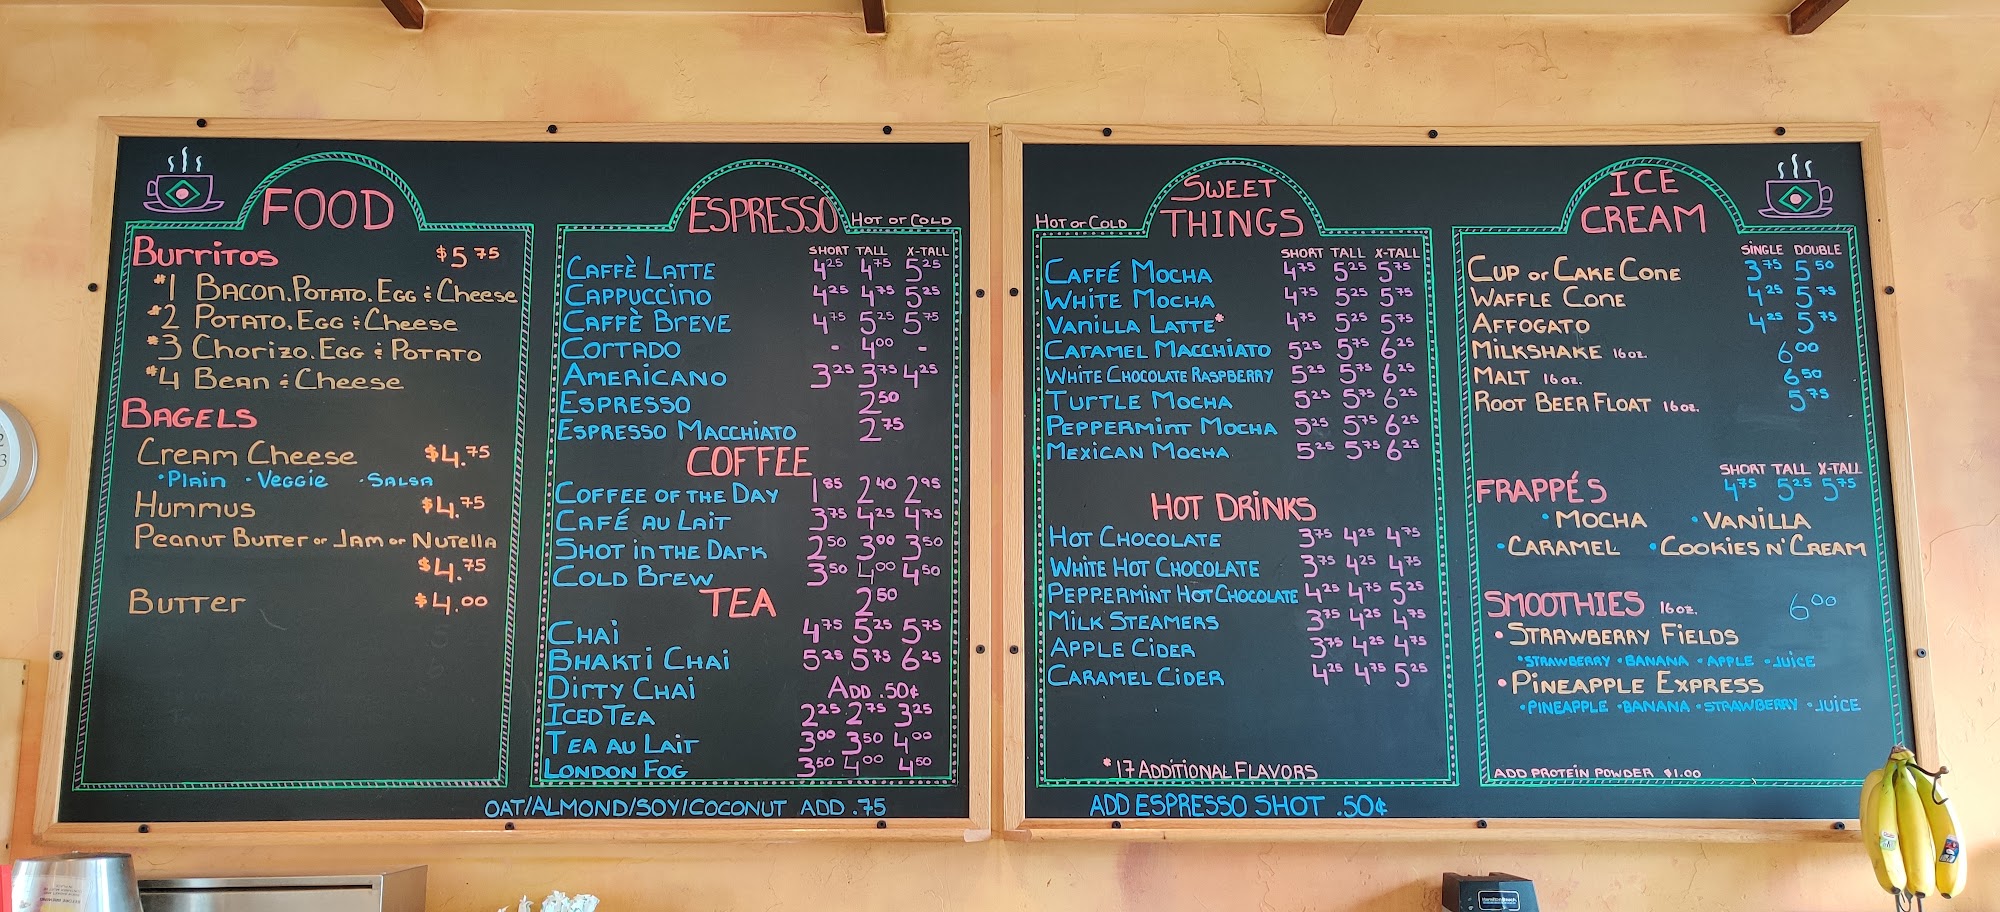 FOOD
Burritos $5 75
#1 Bacon, Potato, Egg & Cheese
#2 Potato, Egg & Cheese
#3 Chorizo, Egg & Potato
#4 Bean & Cheese
BAGELS
Cream Cheese $4.75
•Plain •Veggie •Salsa
Hummus $4.75
Peanut Butter or Jam or Nutella
$4.75
Butter $4.00
ESPRESSO Hot or Cold
SHORT TALL X-TALL
CAFFÈ LATTE 4 25 4 75 5 25
CAPPUCCINO 4 25 4 75 5 25
CAFFÈ BREVE 4 75 5 25 5 75
CORTADO - 4 00 -
AMERICANO 3 25 3 75 4 25
ESPRESSO 2 50
ESPRESSO MACCHIATO 2 75
COFFEE
COFFEE OF THE DAY 1 85 2 40 2 95
CAFÉ AU LAIT 3 75 4 25 4 75
SHOT IN THE DARK 2 50 3 00 3 50
COLD BREW 3 50 4 00 4 50
TEA 2 50
CHAI 4 75 5 25 5 75
BHAKTI CHAI 5 25 5 75 6 25
DIRTY CHAI ADD .50¢
ICED TEA 2 25 2 75 3 25
TEA AU LAIT 3 00 3 50 4 00
LONDON FOG 3 50 4 00 4 50
OAT/ALMOND/SOY/COCONUT ADD .75
SWEET
THINGS
Hot or Cold
SHORT TALL X-TALL
CAFFÉ MOCHA 4 75 5 25 5 75
WHITE MOCHA 4 75 5 25 5 75
VANILLA LATTE* 4 75 5 25 5 75
CARAMEL MACCHIATO 5 25 5 75 6 25
WHITE CHOCOLATE RASPBERRY 5 25 5 75 6 25
TURTLE MOCHA 5 25 5 75 6 25
PEPPERMINT MOCHA 5 25 5 75 6 25
MEXICAN MOCHA 5 25 5 75 6 25
HOT DRINKS
HOT CHOCOLATE 3 75 4 25 4 75
WHITE HOT CHOCOLATE 3 75 4 25 4 75
PEPPERMINT HOT CHOCOLATE 4 25 4 75 5 25
MILK STEAMERS 3 75 4 25 4 75
APPLE CIDER 3 75 4 25 4 75
CARAMEL CIDER 4 25 4 75 5 25
*17 ADDITIONAL FLAVORS
ADD ESPRESSO SHOT .50¢
ICE
CREAM
SINGLE DOUBLE
CUP or CAKE CONE 3 75 5 50
WAFFLE CONE 4 25 5 75
AFFOGATO 4 25 5 75
MILKSHAKE 16 oz. 6 00
MALT 16 oz. 6 50
ROOT BEER FLOAT 16 oz. 5 75
SHORT TALL X-TALL
FRAPPÉS 4 75 5 25 5 75
•MOCHA •VANILLA
•CARAMEL •COOKIES N' CREAM
SMOOTHIES 16 oz. 6 00
•STRAWBERRY FIELDS
•STRAWBERRY •BANANA •APPLE •JUICE
•PINEAPPLE EXPRESS
•PINEAPPLE •BANANA •STRAWBERRY •JUICE
ADD PROTEIN POWDER $1.00